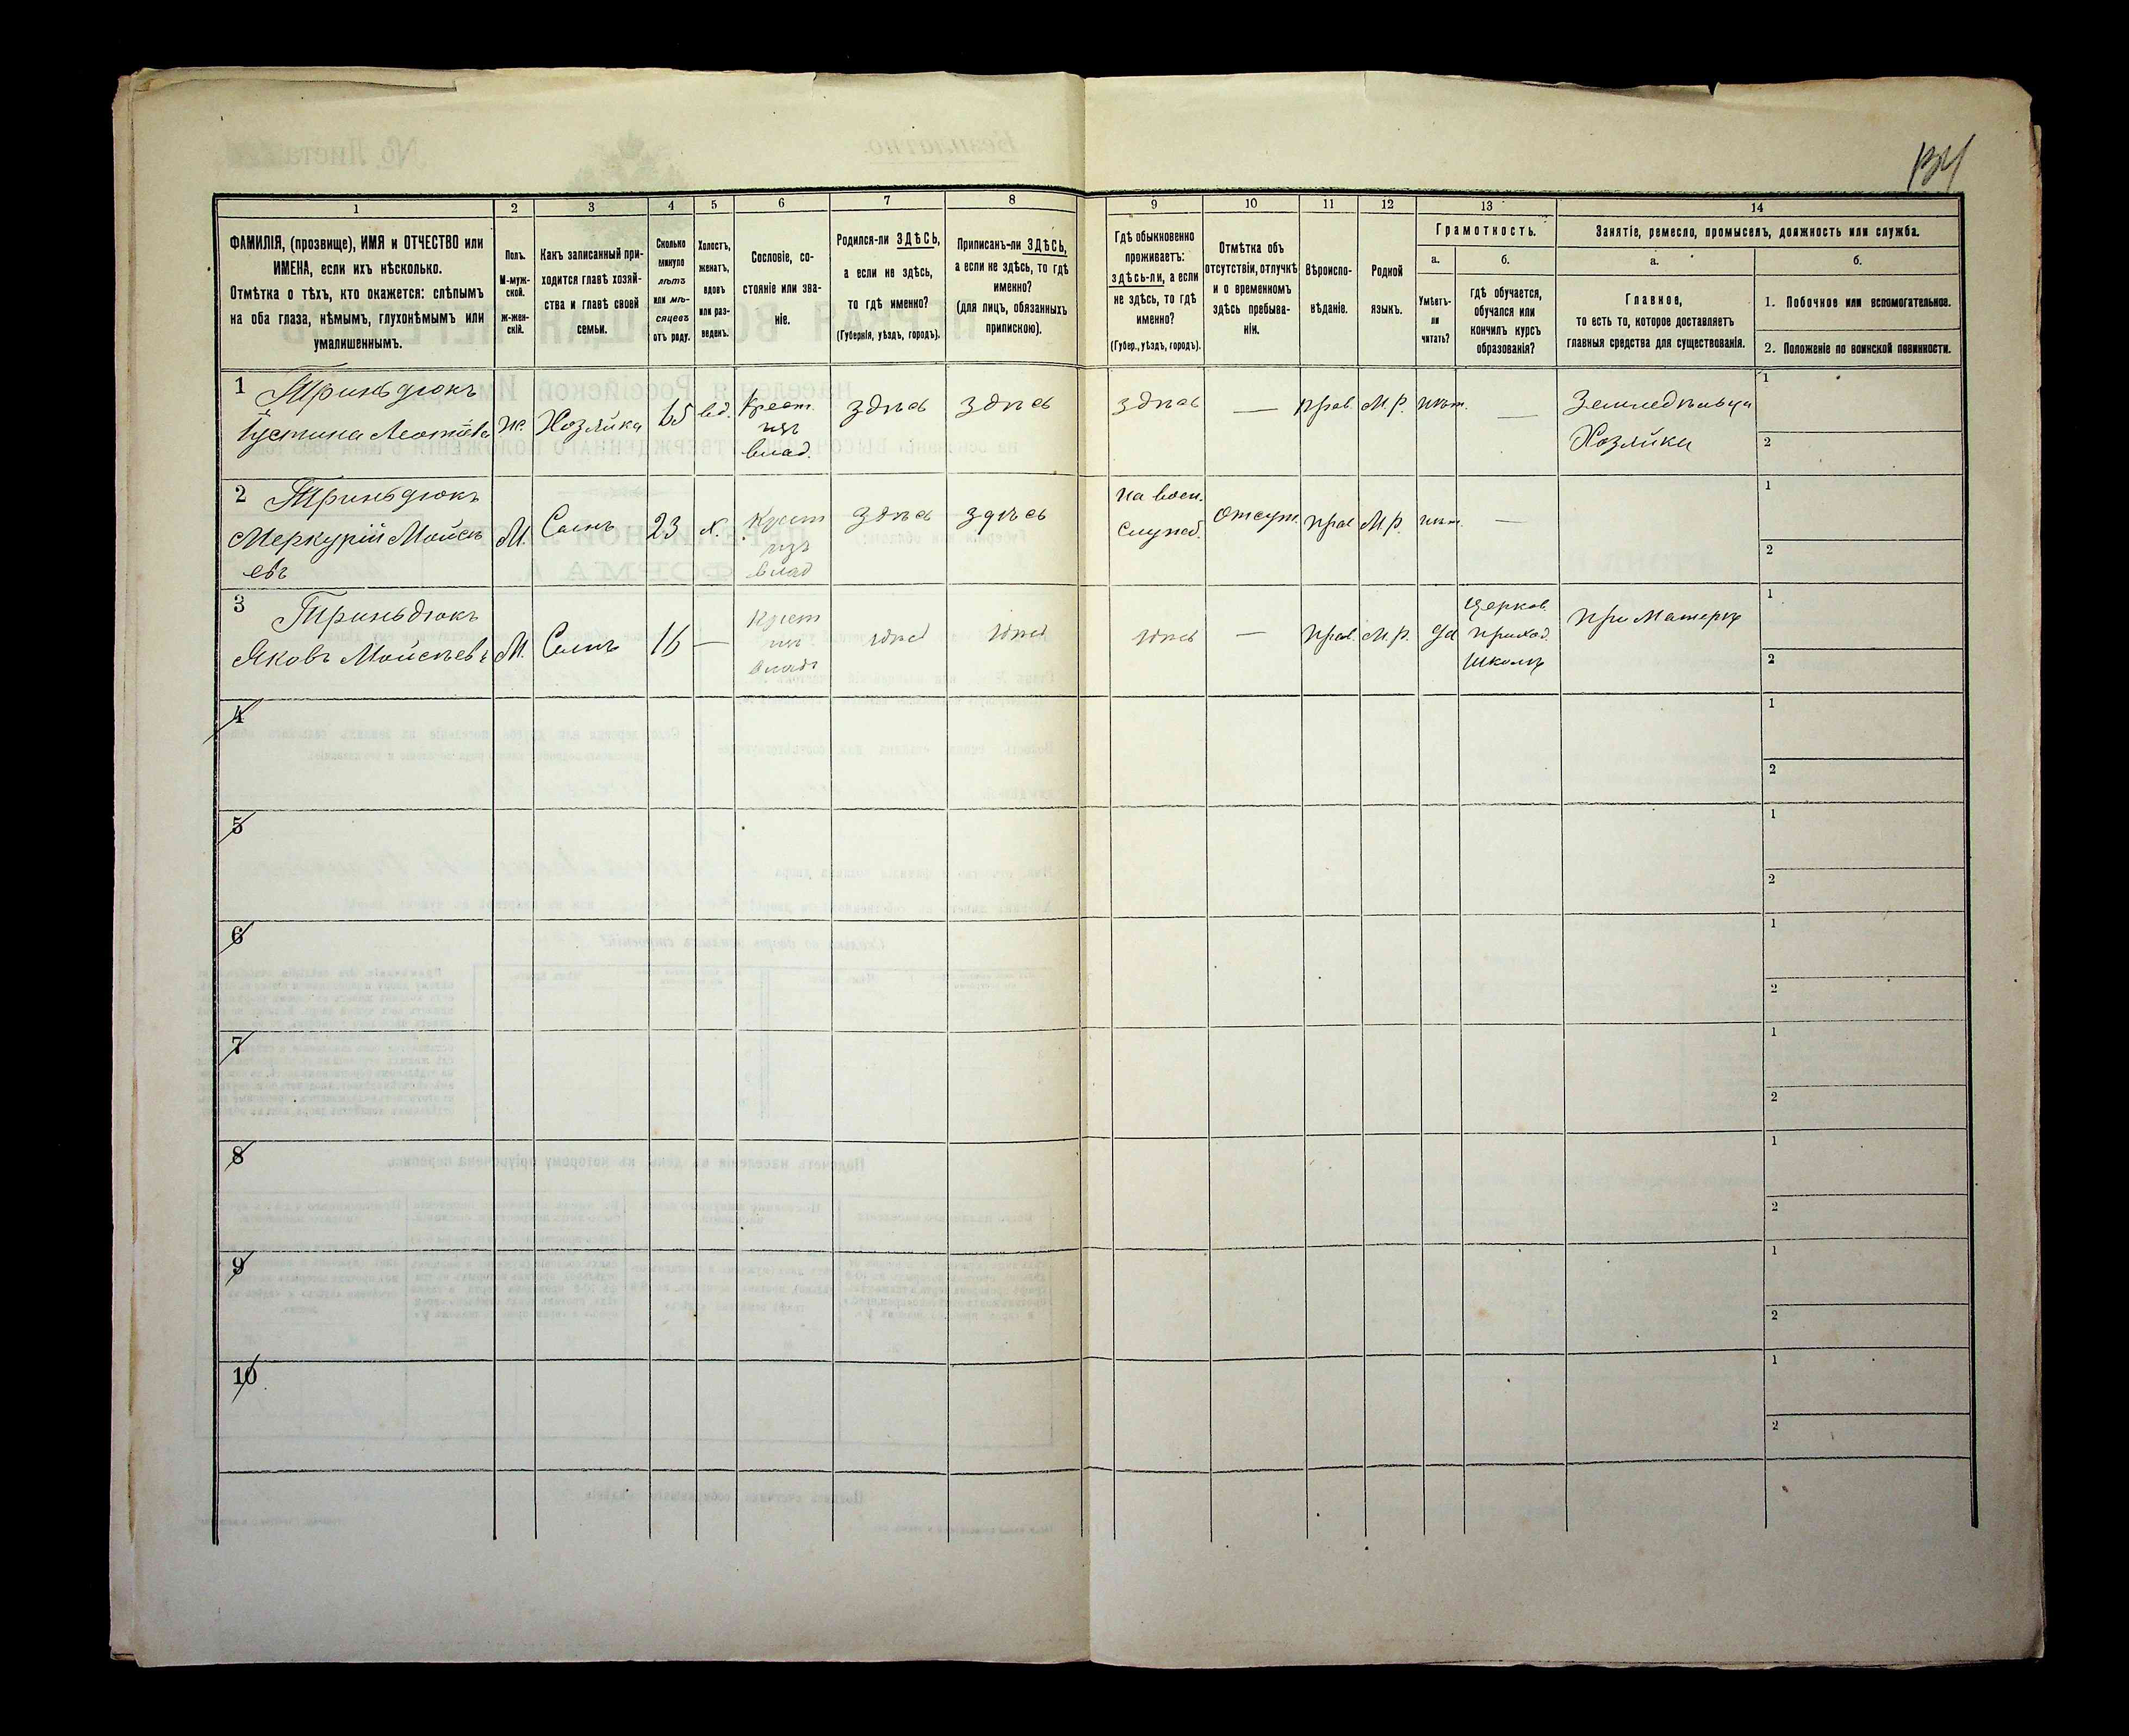 134
1
2
3
4
5
6
7
8
9
10
11
12
13
14
ФАМИЛІЯ, (прозвище), ИМЯ и ОТЧЕСТВО или
ИМЕНА, если ихъ нѣсколько.
Отмѣтка о тѣхъ, кто окажется: слѣпымъ
на оба глаза, нѣмымъ, глухонѣмымъ или
умалишеннымъ.
Полъ.
М-муж-
ской.
ж-жен-
скій.
Какъ записанный при-
ходится главѣ хозяй-
ства и главѣ своей
семьи.
Сколько
минуло
лѣтъ
или мѣ-
сяцевъ
отъ роду.
Холостъ,
женатъ,
вдовъ
или раз-
веденъ.
Сословіе, со-
стояніе или зва-
ніе.
Родился-ли ЗДѢСЬ,
а если не здѣсь,
то гдѣ именно?
(Губернія, уѣздъ, городъ).
Приписанъ-ли ЗДѢСЬ,
а если не здѣсь, то гдѣ
именно?
(для лицъ, обязанныхъ
припискою).
Гдѣ обыкновенно
проживаетъ:
здѣсь-ли, а если
не здѣсь, то гдѣ
именно?
(Губер., уѣздъ, городъ).
Отмѣтка объ
отсутствіи, отлучкѣ
и о временномъ
здѣсь пребыва-
ніи.
Вѣроиспо-
вѣданіе.
Родной
языкъ.
Грамотность.
а.
Умѣетъ-
ли
читать?
б.
гдѣ обучается,
обучался или
кончилъ курсъ
образованія?
Занятіе, ремесло, промыселъ, должность или служба.
а.
Главное,
то есть то, которое доставляетъ
главныя средства для существованія.
б.
1. Побочное или вспомогательное.
2. Положеніе по воинской повинности.
1 Триньдюкъ
Іустина Леонтіева
ж.
Хозяйка
65
вд.
Крест.
изъ
влад.
здѣсь
здѣсь
здѣсь
—
прав.
М.р.
нѣт.
—
Земледѣльца
Хозяйка
1
2
2 Триньдюкъ
Меркурій Мойсѣ
евъ
М.
Сынъ
23
х.
Крест
изъ
влад
здѣсь
здѣсь
на воен.
служб.
Отсут.
прав
М.р.
нѣт.
—
1
2
3 Триньдюкъ
Яковъ Мойсѣевъ
М.
Сынъ
16
—
Крест
изъ
влад
здѣсь
здѣсь
здѣсь
—
прав.
М.р.
да
Церков.
приход.
школѣ
при Матерѣ
1
2
4
1
2
5
1
2
6
1
2
7
1
2
8
1
2
9
1
2
10
1
2